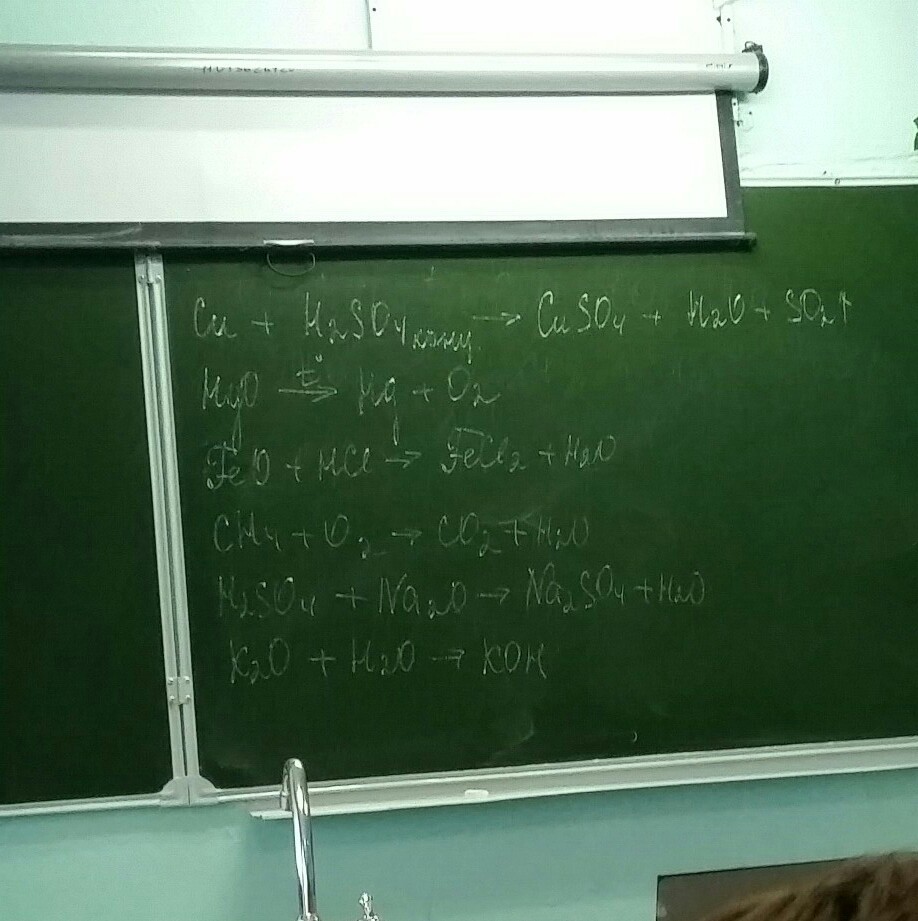 Cu + H₂SO₄ конц. → CuSO₄ + H₂O + SO₂↑
HgO t°→ Hg + O₂
FeO + HCl → FeCl₂ + H₂O
CH₄ + O₂ → CO₂ + H₂O
H₂SO₄ + Na₂O → Na₂SO₄ + H₂O
K₂O + H₂O → KOH